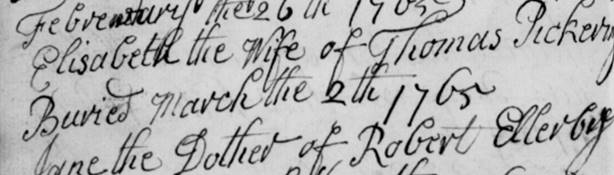 Febreuary the 26 th 1765
Elisabeth the Wife of Thomas Pickerin
Buried March the 2th 1765
Jane the Dother of Robert Ellerby